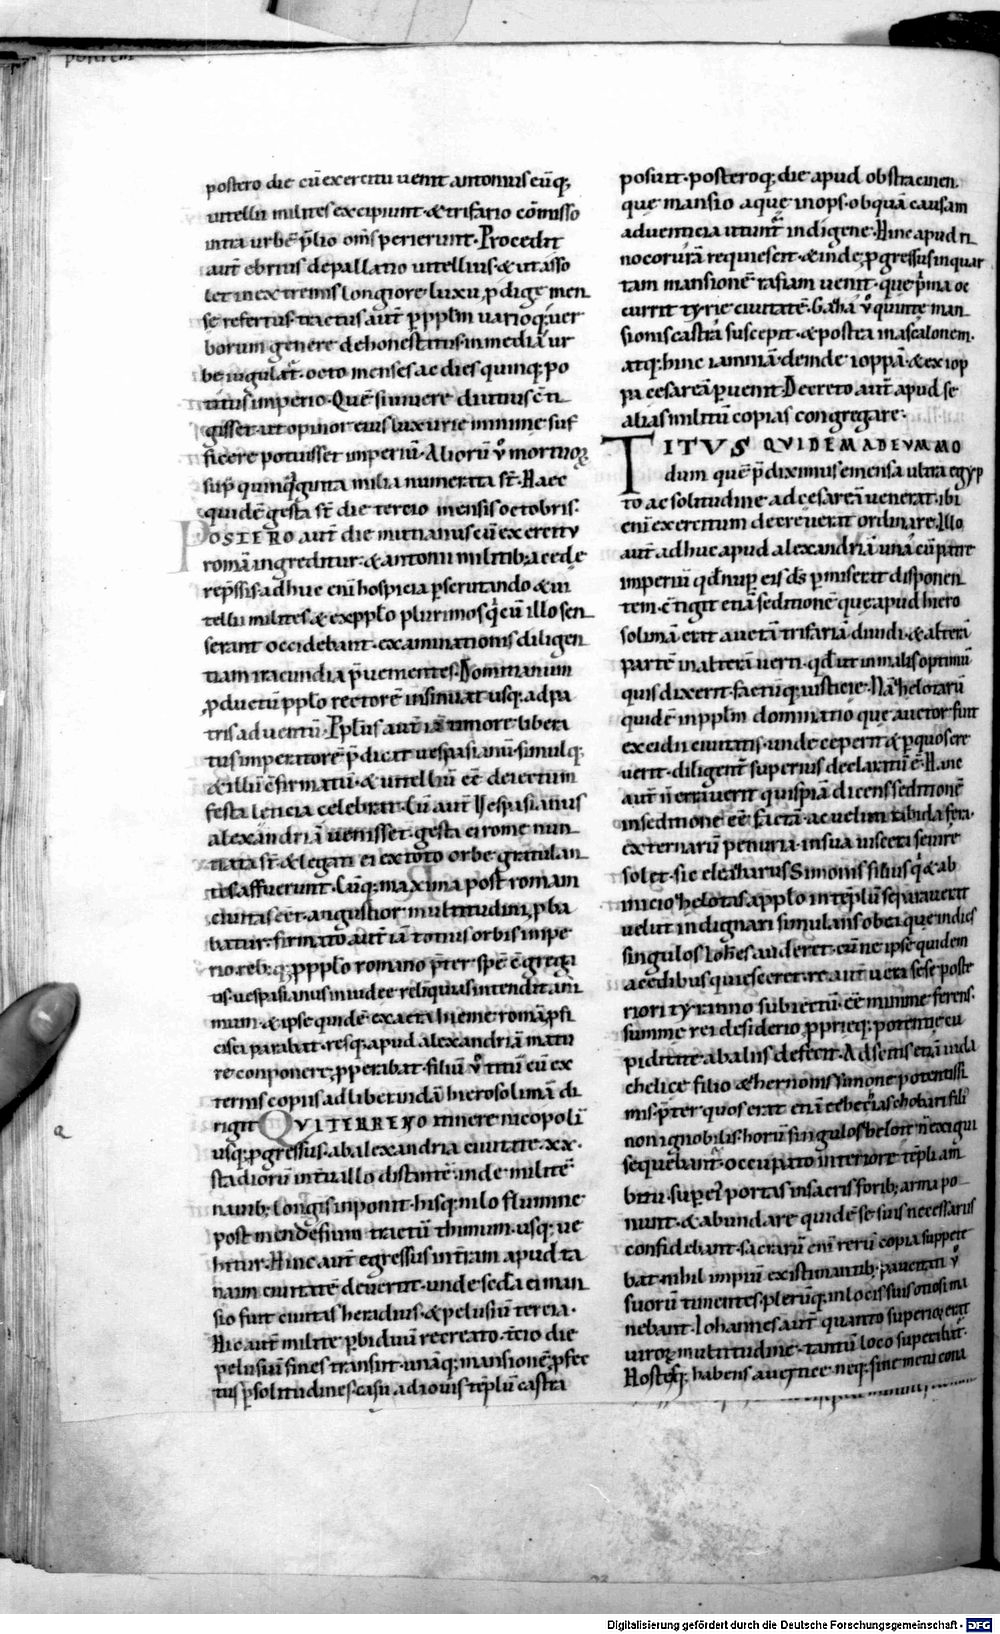 postero die cū exercitu uenit antonius eūq;
uitellii milites excipiunt · & trifario cōmisso
intra urbē p̄lio om̄s perierunt · Procedit
aut̄ ebrius de pallatio uitellius · & ut asso
let in extremis longiore luxu ꝓdige men
se refertus · tractus aut̄ per pp̄lm uarioq; uer
borum genere dehonestatus · in media ur
be iugulat̄ · octo menses ac dies quinq; po
titus imperio · Quē si uiuere diutius cōti
gisset · ut opinor eius luxurie minime suf
ficere potuisset imperiū · Aliorū ů mortuoꝝ
sup̄ quinq̄ginta milia numerata st̄ · Haec
quidē gesta st̄ die tercio mensis octobris ·
POSTERO aut̄ die mutianus cū exercitu
romā ingreditur · & antonii militib; a cede
rep̄ssis adhuc eni hospicia ꝑscrutando & ui
tellii milites & ex pp̄lo plurimos q̄i cū illo sen
serant occidebant · examinationis diligen
tiam iracundia p̄uenientes · Domitianum
ꝓductū pp̄lo rectorē insinuat usq; ad pa
tris aduentū · Pplus aut̄ iā timore libera
tus imperatorē p̄dicat uespasianū · simulq;
& illū cōfirmatū · & uitelliū eē deiectum
festa leticia celebrat · Cū aut̄ Vespasianus
alexandriā uenisset · gesta ei rome nun
tiata st̄ & legati ei ex toto orbe gratulan
tes affuerunt · Cūq; maxima post romam
ciuitas eēt · angustior multitudini ꝓba
batur · firmato aut̄ iā totius orbis inpe
rio · reb; q; pro pp̄lo romano p̄ter spē cōgrega
tis · uespasianus in iudee reliquias intendit ani
mum · & ipse quidē exacta hieme romā ꝓfi
cisci parabat · resq; apud alexandriā matu
re conponere ꝓperabat · filiū ů titū cū ex
ternis copiis ad libeundā hierosolimā di
rigit QVI TERRENO itinere nicopoli
usq; ꝓgressus · ab alexandria ciuitate · xx ·
stadiorū interuallo distante · inde militē
nauib; longis inponit · hisq; nilo flumine
post mendesium tractū thimum · usq; ue
hitur · Hinc aut̄ egressus in terram apud ta
naim ciuitatē deuertit · unde seda ei man
sio fuit ciuitas heradius · & pelusiū tercia ·
Hic aut̄ milite ꝑ biduū recreato · tercio die
pelusiū fines transiit · unāq; mansionē ꝓfec
tus ꝑ solitudines · casii ad iouis tēplū castra
posuit · posteroq; die apud obstracinen ·
que mansio aque inops · ob quā causam
aduenticia utunt̄ indigene · Hinc apud ri
nocorurā requiescit · & inde ꝓgressus in quar
tam mansionē rafiam uenit · que prima oc
currit tyrie ciuitatē · Gaza ů quinte man
sionis castra suscepit · & postea in ascalonem ·
atq; hinc iamniā · deinde ioppā · & ex iop
pa cesareā ꝑuenit · Decreto aut̄ apud se
alias militū copias congregare ·
TITVS QVIDEM AD EVM MO
dum quē p̄diximus emensa ultra egyp
to ac solitudine ad cesareā uenerat · ibi
eni exercitum decreuerat ordinare · Illo
aut̄ adhuc apud alexandriā una cū patre
imperiū qd̄ nup̄ eis ds̄ ꝑmiserit disponen
tem · cōtigit etiā seditionē que apud hiero
solimā erat auctā trifariā diuidi · & alterā
partē in alterā uerti · qd̄ ut in malis optimū
quis dixerit · factūq; iusticie · Nā helotarū
quidē in pp̄lm dominatio que auctor fuit
excidii ciuitatis · unde ceperit & ꝑ quos cre
uerit · diligent̄ superius declaratū ē · Hanc
aut̄ n̄ errauerit quispiā dicens seditionē
in seditione eē factā · ac uelim rabida fera ·
externarū penuria · in sua uiscera seuire
solet · sic eleazarus Simonis filius q̄i & ab
inicio helotas a pp̄lo in tēplū separauerit
uelut indignari simulans ob ea que in dies
singulos Iohes auderet · cū ne ipse quidem
a cedibus quiesceret · re aut̄ uera sese poste
riori tyranno subiectū eē minime ferens ·
summe rei desiderio ꝓprieq; potentie cu
piditate ab aliis defecit · Adscitis etiā iuda
chelice filio & hernomis simone potentissi
mis · p̄ter quos erat etiā eze chias chobari fili
non ignobilis · horū singulos helote n̄ exigui
sequebant̄ · occupato interiore tēpli am
bitu · super portas in sacris forib; arma po
nunt · & abundare quidē se suis necessariis
confidebant · sacrarū eni rerū copia suppete
bat · nihil impiū existimantib; · paucitatē ů
suorū timentes · plerūq; in locis suis otiosi ma
nebant · Iohannes aut̄ quanto superior erat
uiroꝝ multitudine · tantū loco superabat̄ ·
Hosteq; habens a uertice neq; sine metu cona
a